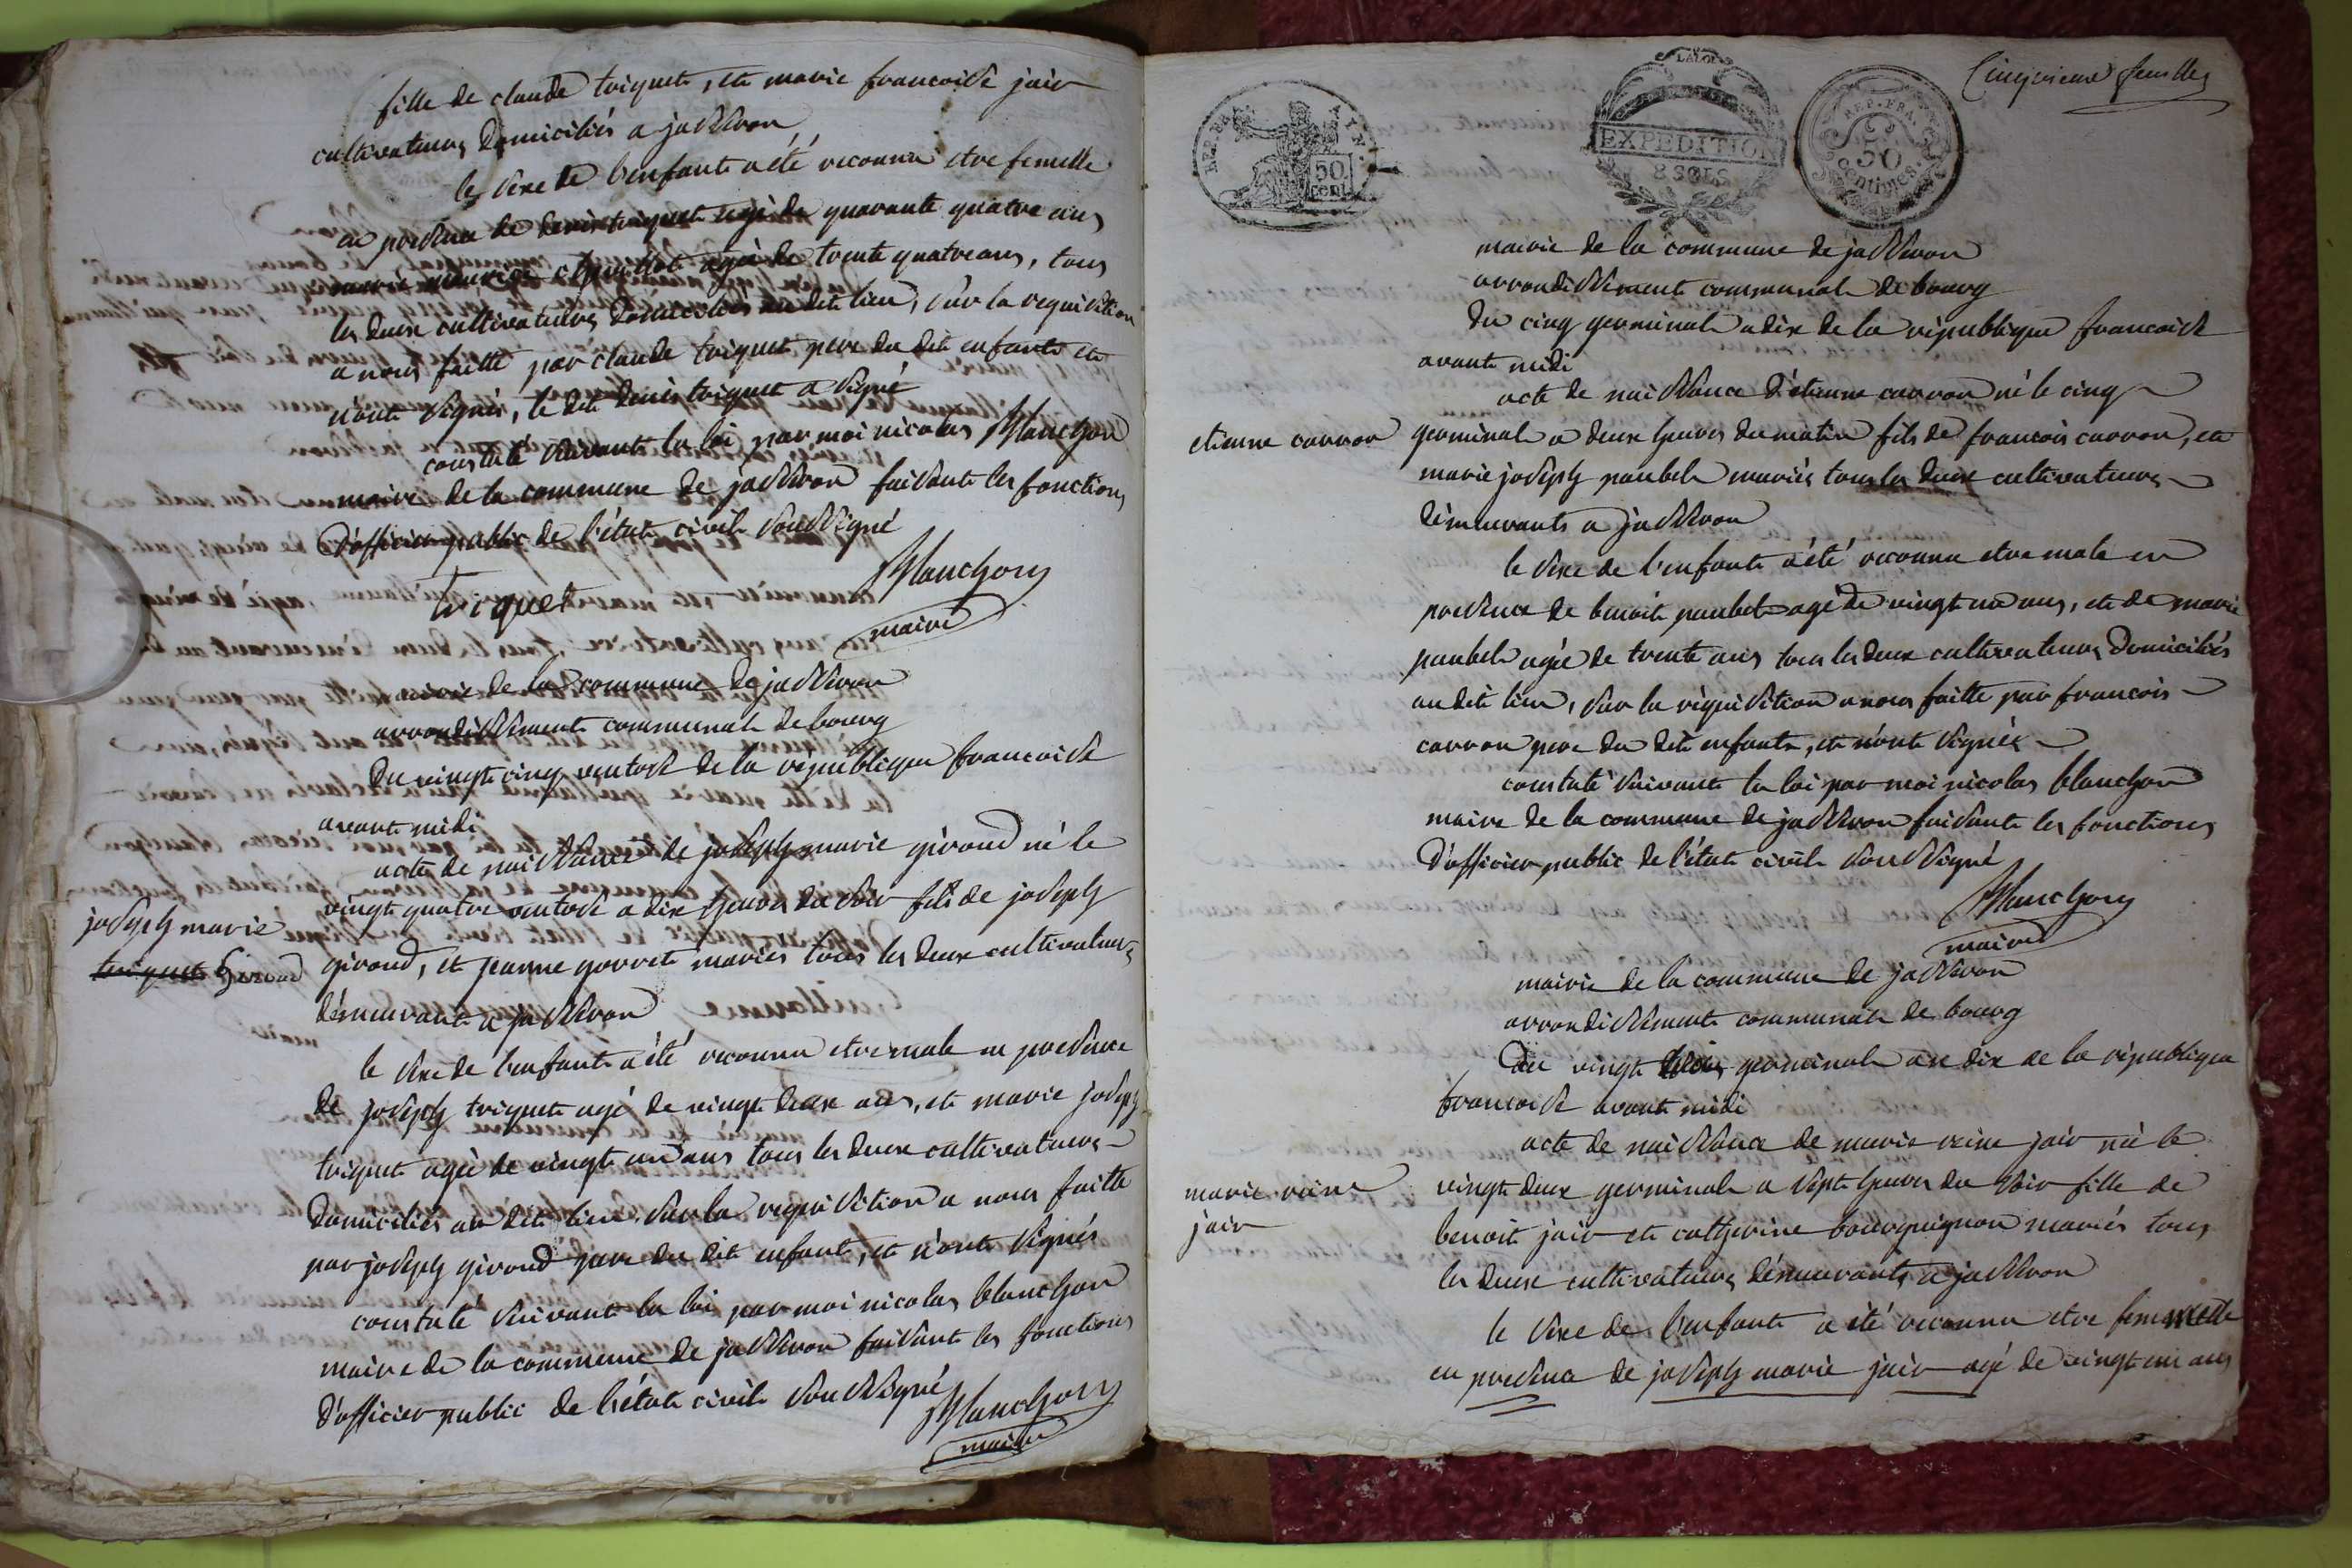 fille de claude triquet, et marie francoise jair
cultivateurs domiciliés a jasseron
le sexe de l'enfant a été reconnu etre femelle
en presence de denis triquet agé de quarante quatre ans
marie chevillot agée de trente quatre ans, tous
les deux cultivateurs domiciliés au dit lieu, sur la requisition
a nous faitte par claude triquet pere du dit enfant et
n'ont signés, le dit denis triquet a signé
constaté suivant la loi par moi nicolas Blanchon
maire de la commune de jasseron faisant les fonctions
d'officier public de l'état civil soussigné
triquet
Blanchon
maire
mairie de la commune de jasseron
arrondissement communal de bourg
Du vingt cinq ventose de la république francoise
avant midi
acte de naissance de joseph marie giroud né le
joseph marie
triquet Giroud
vingt quatre ventose a dix heures du soir fils de joseph
giroud, et jeanne gorret mariés tous les deux cultivateurs
démeurant a jasseron
le sexe de l'enfant a été reconnu etre male en presence
de joseph triquet agé de vingt deux ans, et marie joseph
triquet agée de vingt un ans tous les deux cultivateurs
domiciliés au dit lieu, sur la requisition a nous faitte
par joseph giroud pere du dit enfant, et n'ont signés
constaté suivant la loi par moi nicolas blanchon
maire de la commune de jasseron faisant les fonctions
d'officier public de l'état civil soussigné
Blanchon
maire
Cinquieme feuille
REP. FRA.
50
cent.
LA LOI
EXPEDITION
8 SOLS
REP. FRA.
50
Centimes
mairie de la commune de jasseron
arrondissement communal de bourg
Du cinq germinal a dix de la république francoise
avant midi
acte de naissance d'etienne carron né le cinq
etienne carron
germinal a deux heures du matin fils de francois carron, et
marie joseph paubel mariés tous les deux cultivateurs
démeurants a jasseron
le sexe de l'enfant a été reconnu etre male en
presence de benoit paubel agé de vingt un ans, et de marie
paubel agée de trente ans tous les deux cultivateurs domiciliés
au dit lieu, sur la réquisition a nous faitte par francois
carron pere du dit enfant, et n'ont signés
constaté suivant la loi par moi nicolas blanchon
maire de la commune de jasseron faisant les fonctions
d'officier public de l'état civil soussigné
Blanchon
maire
mairie de la commune de jasseron
arrondissement communal de bourg
Du vingt trois germinal an dix de la république
francoise avant midi
acte de naissance de marie reine jair né le
marie reine
jair
vingt deux germinal a sept heures du soir fille de
benoit jair et catherine bourguignon mariés tous
les deux cultivateurs démeurants a jasseron
le sexe de l'enfant a été reconnu etre femmelle
en presence de joseph marie jair agé de vingt un ans